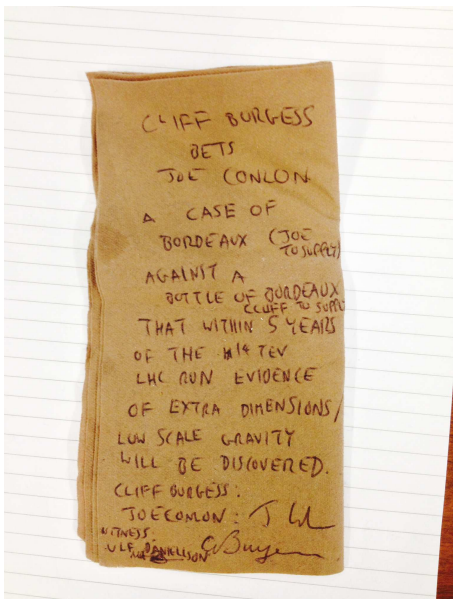 CLIFF BURGESS
BETS
JOE CONLON
A CASE OF
BORDEAUX (JOE
TO SUPPLY)
AGAINST A
BOTTLE OF BORDEAUX
CLIFF TO SUPPLY
THAT WITHIN 5 YEARS
OF THE 14 TEV
LHC RUN EVIDENCE
OF EXTRA DIMENSIONS/
LOW SCALE GRAVITY
WILL BE DISCOVERED.
CLIFF BURGESS:
JOE CONLON:
WITNESS:
ULF DANIELSSON